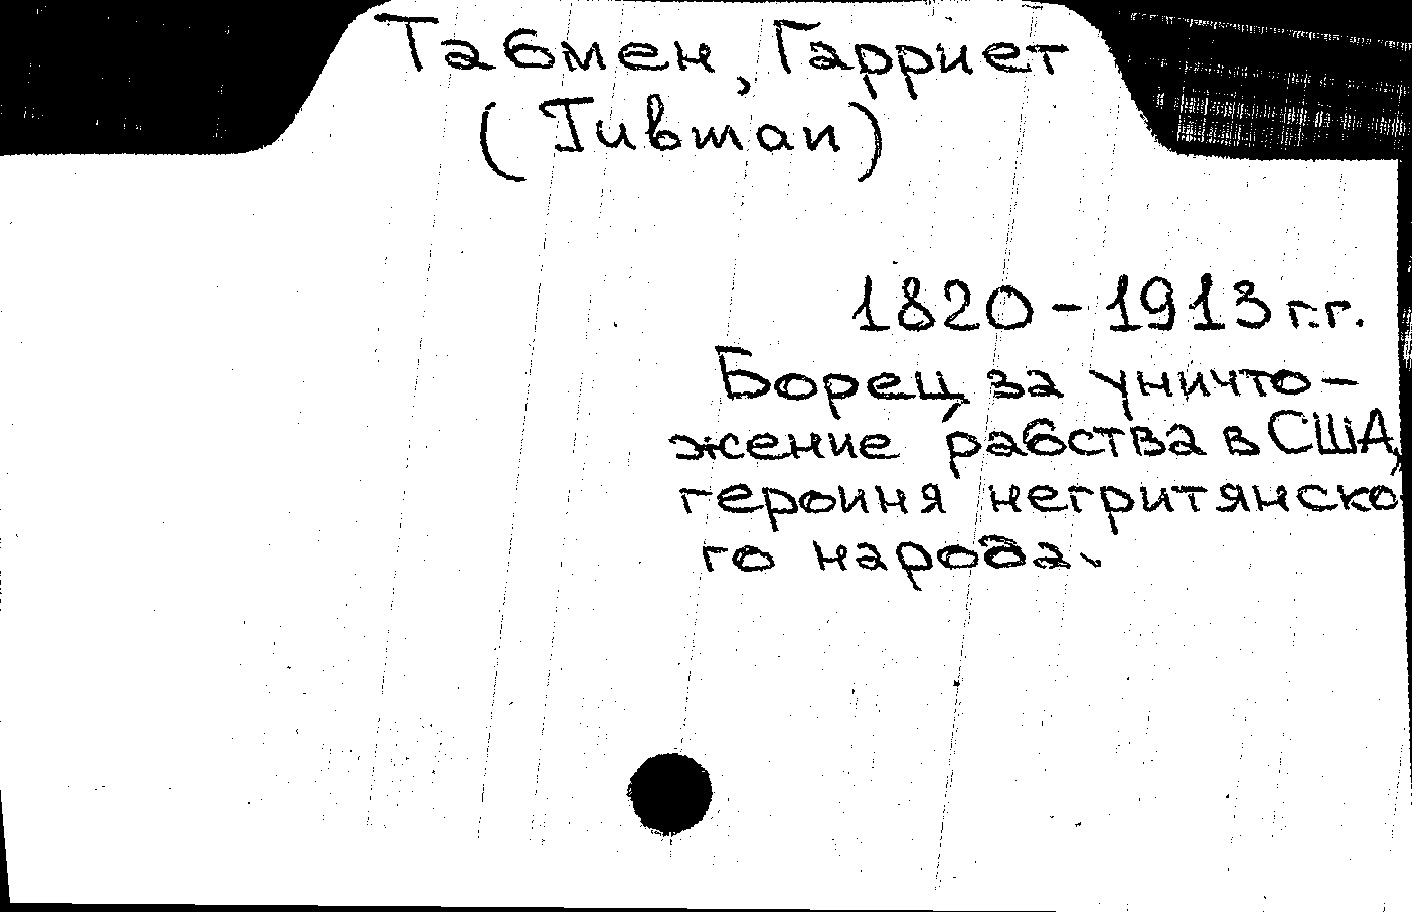 Табмен, Гарриет
(Тивтап)
1820-1913 г.г.
Борец за уничто-
жение рабства в США,
героиня негритянско
го народа.